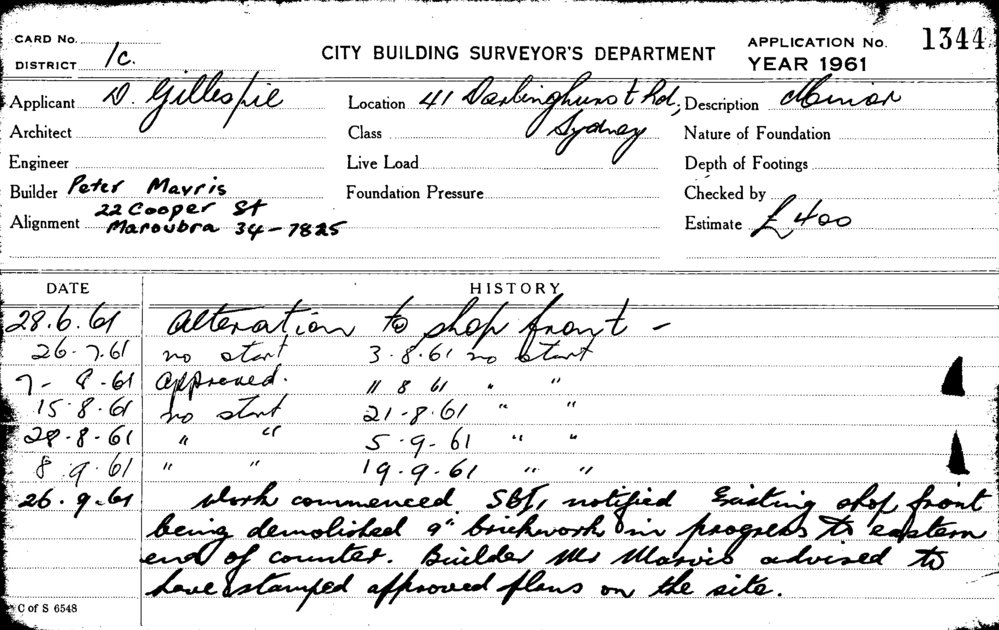 CARD No.
DISTRICT 1c.
CITY BUILDING SURVEYOR'S DEPARTMENT
APPLICATION No. 1344
YEAR 1961
Applicant D. Gillespie
Location 41 Darlinghurst Rd, Sydney
Description Minor
Architect
Class
Nature of Foundation
Engineer
Live Load
Depth of Footings
Builder Peter Mavris
Foundation Pressure
Checked by
22 Cooper St
Alignment Maroubra 34-7825
Estimate £400
DATE HISTORY
28.6.61 Alteration to shop front -
26-7.61 no start 3.8.61 no start
7-8-61 Approved. 11 8 61 " "
15.8.61 no start 21-8.61 " "
28-8-61 " " 5.9.61 " "
8.9.61 " " 19.9.61 " "
26.9.61 Work commenced. SBI, notified Existing shop front
being demolished 9" brickwork in progress to eastern
end of counter. Builder Mr Marvis advised to
have stamped approved plans on the site.
C of S 6548